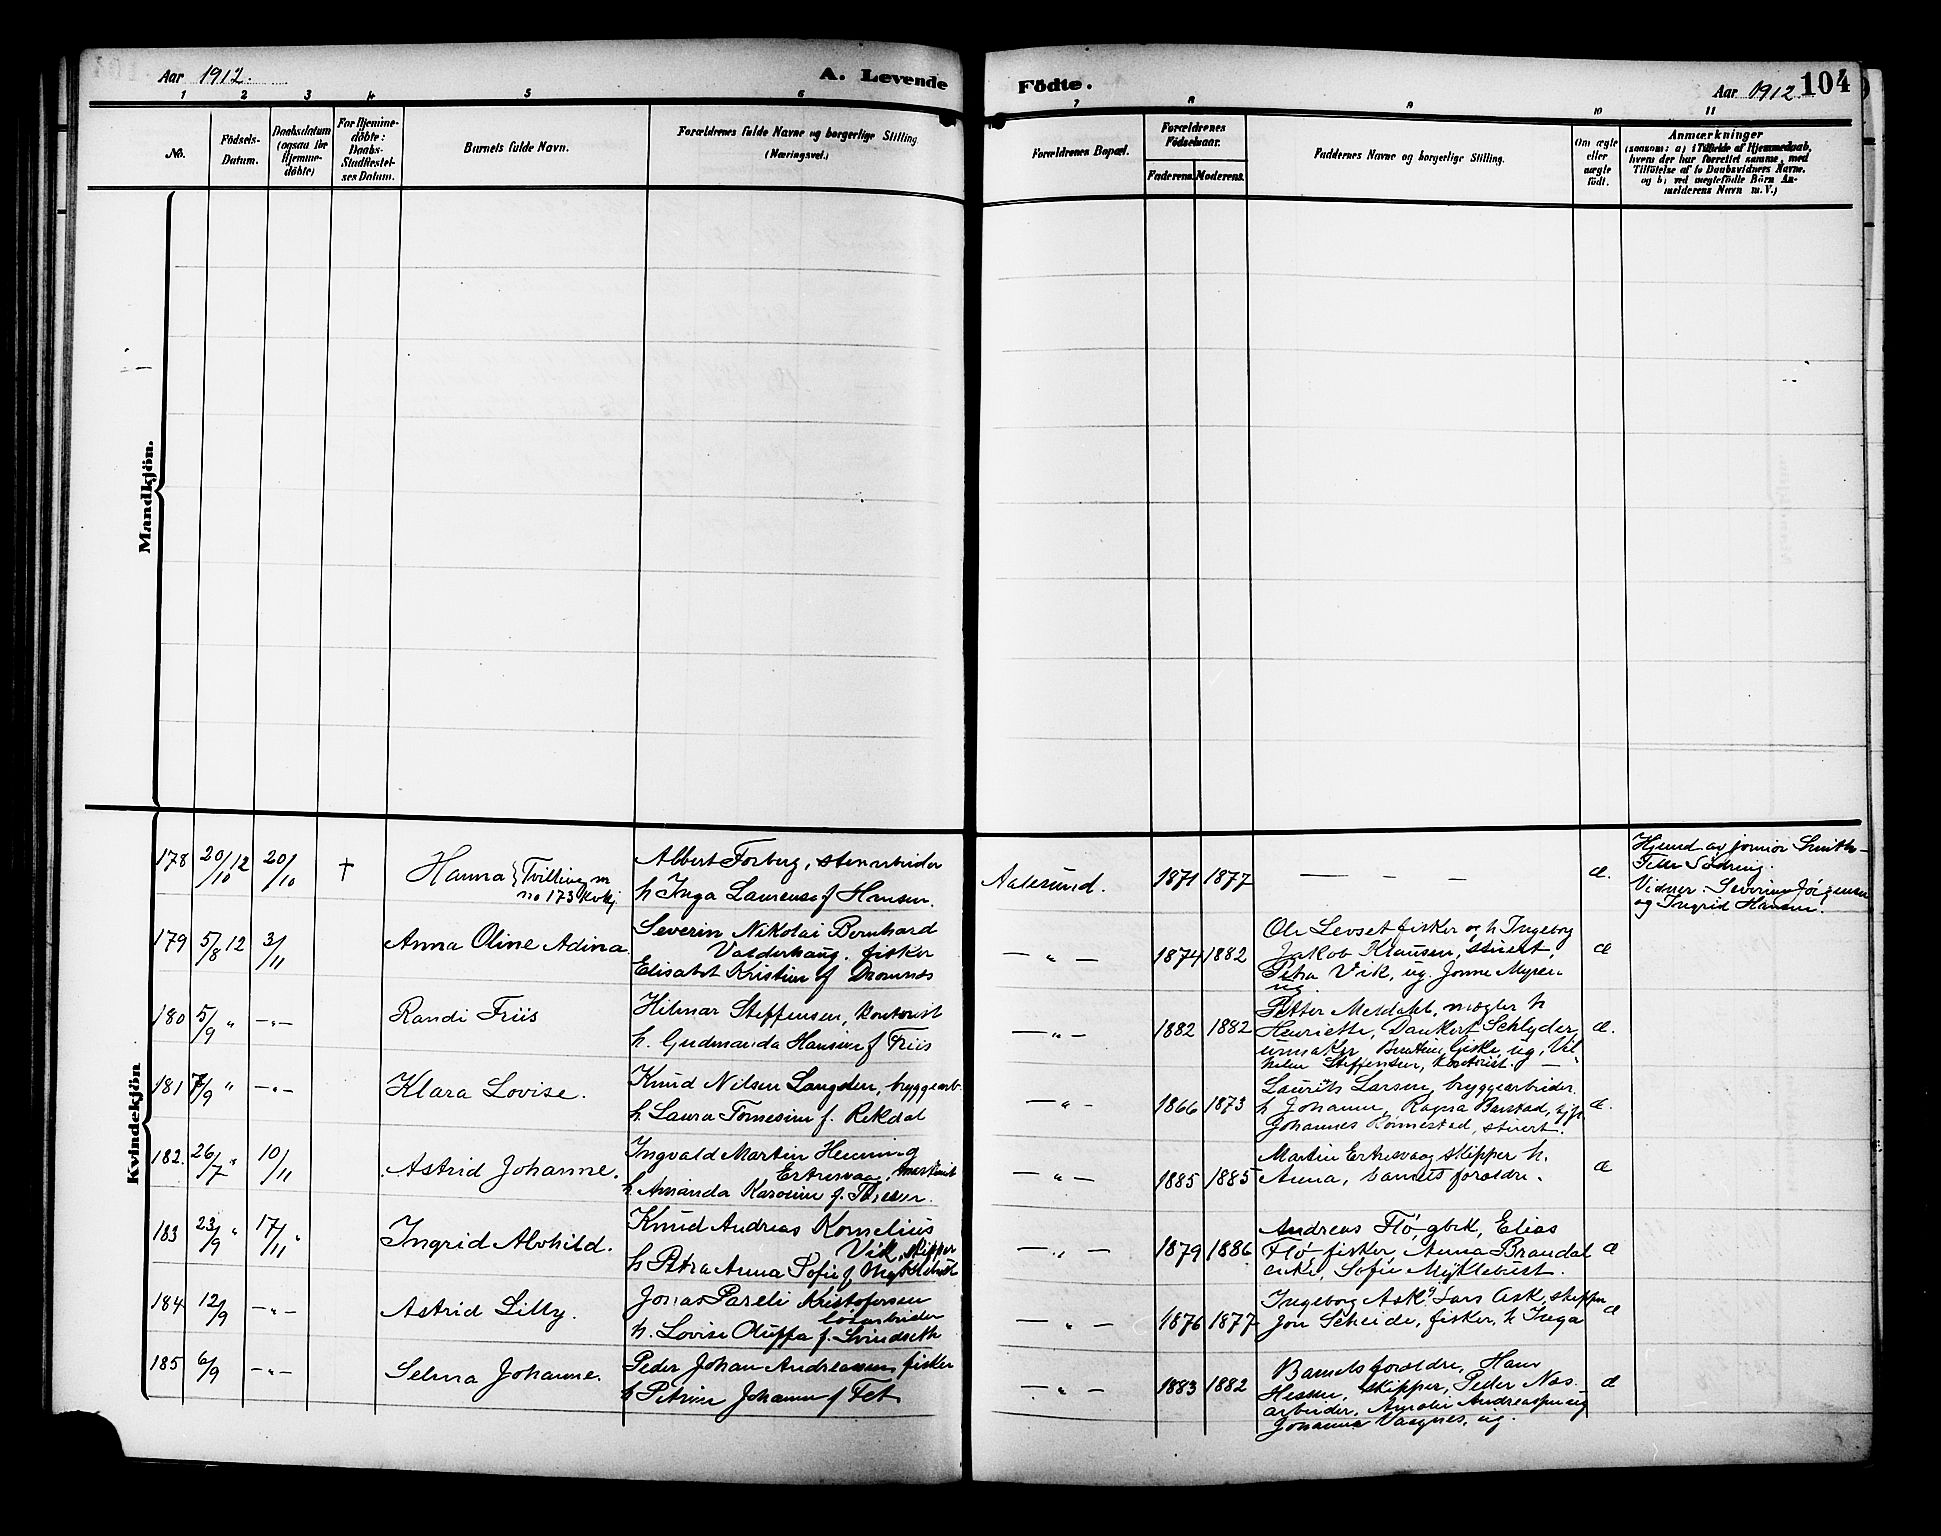 Aar 1912.
A. Levende
Födte.
Aar 1912
104
1 2 3 4 5 6 7 8 9 10 11
No.
Födsels-
Datum.
Daabsdatum
(ogsaa for
Hjemme-
döbte)
For Hjemme-
döbte:
Daabs-
Stadfæstel-
ses Datum.
Barnets fulde Navn.
Forældrenes fulde Navne og borgerlige Stilling
(Næringsvei.)
Forældrenes Bopæl.
Forældrenes
Födselsaar.
Faderens.
Moderens.
Faddernes Navne og borgerlige Stilling.
Om ægte
eller
uægte
födt.
Anmærkninger
(saasom: a) i Tilfælde af Hjemmedaab,
hvem der har forrettet samme, med
Tilföielse af to Daabsvidners Navne.
og b) ved uægtefödte Börn An-
mælderens Navn m. V.)
Mandkjön.
Kvindekjön
178 20/10 12 20/10 † Hanna } Tvilling m
no 173 Kvkj
Albert Forberg, stenarbeider
h Inga Laurense f Hansen.
Aalesund. 1871 1877 — — — æ.
Hjemd av jormor Smith-
Petter Södring.
Vidner: Severine Jörgensen
og Ingrid Hansen.
179 5/8 12 3/11 Anna Oline Adina
Severin Nikolai Bernhard
Valderhaug. fisker
Elisabet Kristine f Dromnes
— „ — 1874 1882
Ole Levset fisker og h Ingeborg
Jakob Klausen, stuert,
Petra Vik, ug. Jonne Myren
ug.
æ
180 5/9 „ — „ — Randi Friis
Hilmar Steffensen, kontorist
h. Gudmanda Hansine f Friis
— „ — 1882 1882
Petter Meldahl, mægler h
Henriette, Dankert Schlyder
urmaker, Berntine Giske, ug, Vil-
helm Steffensen, kontorist. —
æ.
181 7/9 „ — „ — Klara Lovise.
Knud Nilsen Langden, bryggearb
h Laura Tomesine f. Rekdal
— „ — 1866 1873
Laurits Larsen, bryggearbeider
h Johanne, Ragna Barstad,
Johannes Rönnestad, stuert.
æ.
182. 26/7 „ 10/11 Astrid Johanne.
Ingvald Martin Henning
Ertresvaag, maskinist
h Amanda Karoline f.
— „ — 1885 1885
Martin Ertresvaag skipper h.
Anna, barnets foræeldre.
æ
183 23/9 „ 17/11 „ Ingrid Alvhild.
Knud Andreas Kornelius
Vik, skipper
h Petra Anna Sofie f Myklebust
— „ — 1879 1886
Andreas Flö, gbk, Elias
Flö fisker, Anna Brandal
enke, Sofie Myklebust.
æ
184 12/9 — „ — Astrid Lilly.
Jonas Pareli Kristofersen
losarbeider
h. Lovise Oluffa f. Svindseth
— „ — 1876 1877
Ingeborg Ask, Lars Ask, skipper
Jon Scheide, fisker, h Inga
æ
185 6/9 — „ — Selma Johanne.
Peder Johan Andreassen fisker
h Petrine Johanne f Fet
— „ — 1883 1882
Barnets foræeldre, Hans
Hessen, skipper, Peder Nas.
arbeider, Amalie Andreassen ug
Johanne Vaagnes, ug.
æ